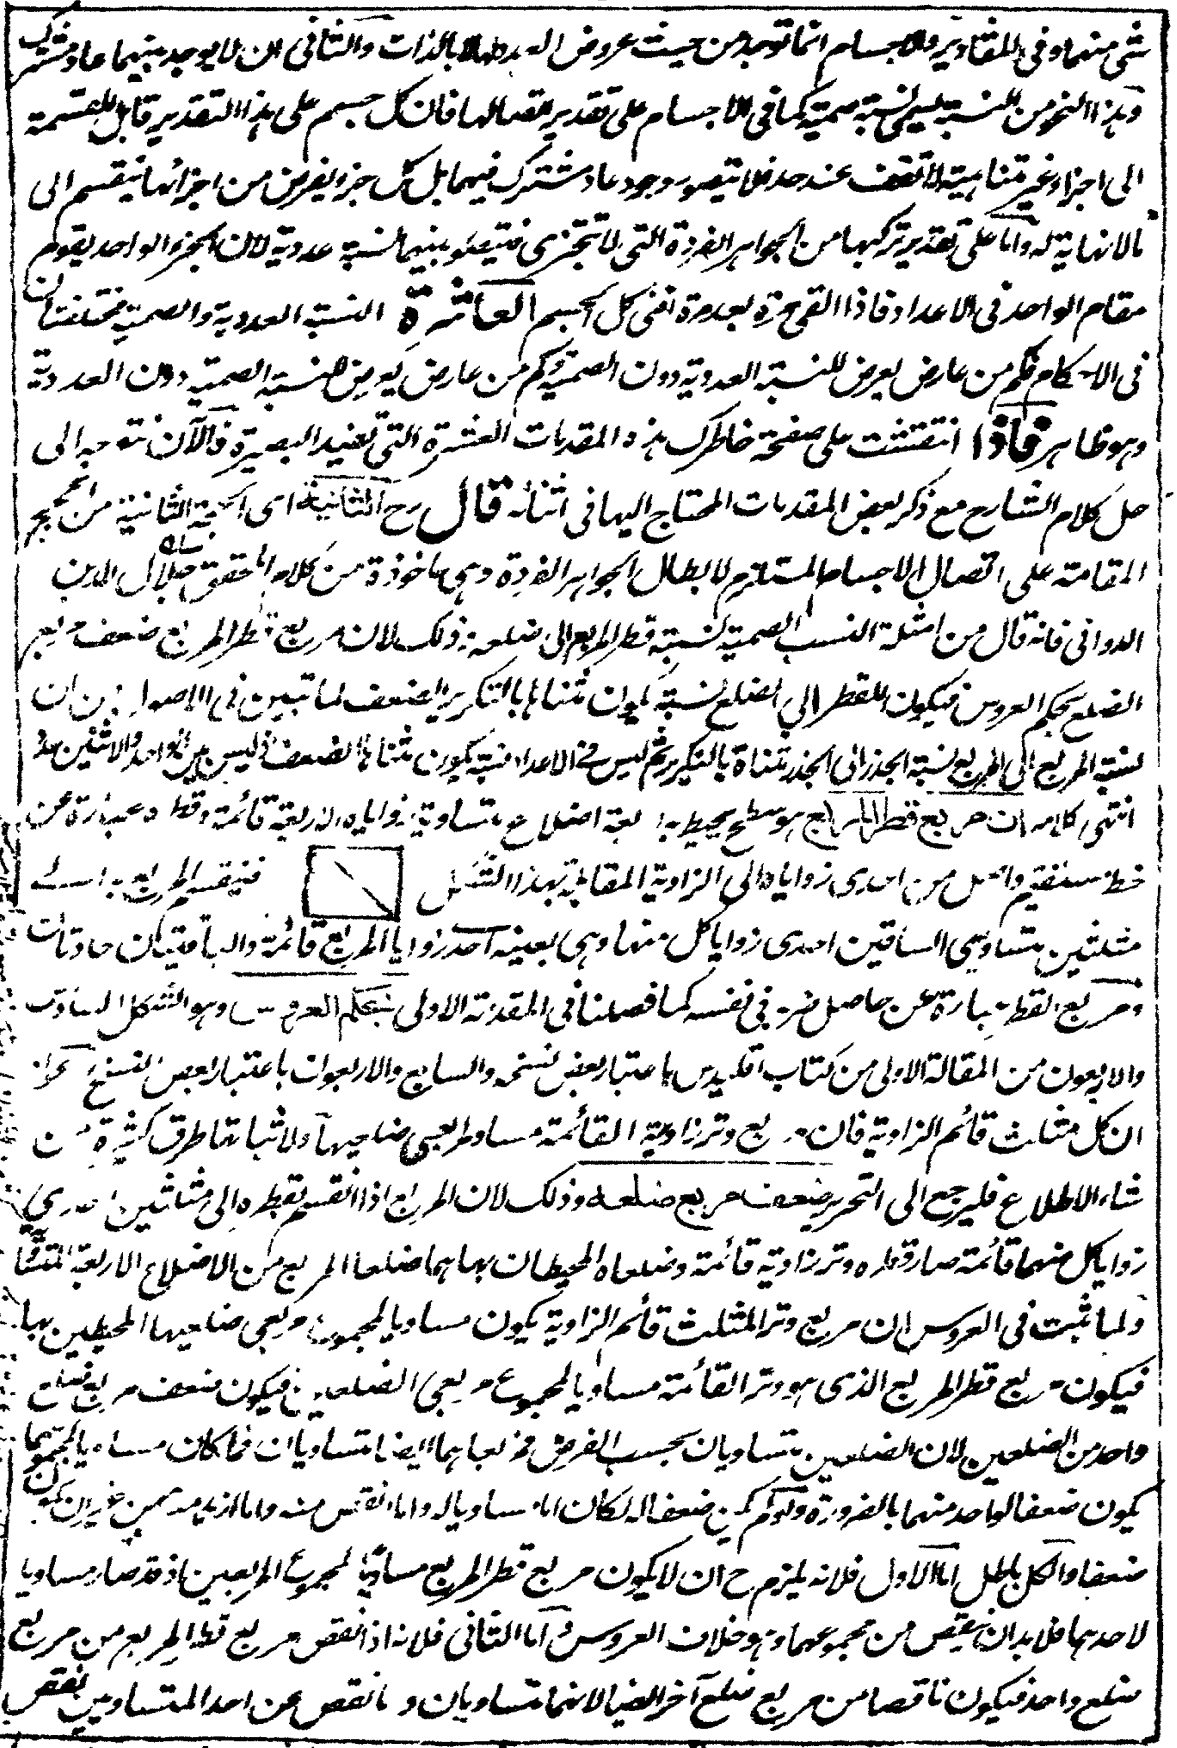 شئ منهما وفى المقادير والاجسام انما توجد من حيث عروض العدد لها لا بالذات والثانى ان لا يوجد بينهما عاد مشترك
وهذا النحو من النسبة يسمى نسبة صمية كما فى الاجسام على تقدير اتصالها فان كل جسم على هذا التقدير قابل للقسمة
الى اجزاء غير متناهية لا تقف عند حد فلا يتصور وجود عاد مشترك فيهما بل كل جزء يفرض من اجزائها ينقسم الى
ما لا نهاية له واما على تقدير تركبها من الجواهر الفردة التى لا تتجزى فيتصور بينهما نسبة عددية لان الجزء الواحد يقوم
مقام الواحد فى الاعداد فاذا القى مرة بعد مرة افنى كل الجسم العاشرة النسبة العددية والصمية مختلفتان
فى الاحكام فكم من عارض يعرض للنسبة العددية دون الصمية وكم من عارض يعرض للنسبة الصمية دون العددية
وهو ظاهر فاذا انتقشت على صفحة خاطرك هذه المقدمات العشرة التى تفيد البصيرة فالآن نتوجه الى
حل كلام الشارح مع ذكر بعض المقدمات المحتاج اليها فى اثنائه قال رح الثانية اى الحجة الثانية من الحجج
المقامة على اتصال الاجسام المستلزم لابطال الجواهر الفردة وهى ماخوذة من كلام المحقق جلال الدين
الدوانى فانه قال من امثلة النسب الصمية نسبة قطر المربع الى ضلعه وذلك لان مربع قطر المربع ضعف مربع
الضلع بحكم العروس فيكون للقطر الى الضلع نسبة يكون مثناها بالتكرير الضعف لما تبين فى الاصول من ان
نسبة المربع الى المربع نسبة الجذر الى الجذر مثناة بالتكرير ثم ليس فى الاعداد نسبة يكون مثناها الضعف اذ ليس بين الواحد والاثنين عدد
انتهى كلامه ان مربع قطر المربع هو سطح يحيط به اربعة اضلاع متساوية زواياه الاربعة قائمة وقطره عبارة عن
خط مستقيم واصل من احدى زواياه الى الزاوية المقابلة بهذا الشكل فينقسم المربع به الى
مثلثين متساوى الساقين احدى زوايا كل منها وهى بعينه احد زوايا المربع قائمة والباقيتان حادتان
ومربع القطر عبارة عن حاصل ضربه فى نفسه كما فصلنا فى المقدمة الاولى بحكم العروس وهو الشكل السادس
والاربعون من المقالة الاولى من كتاب اقليدس باعتبار بعض نسخه والسابع والاربعون باعتبار بعض النسخ
ان كل مثلث قائم الزاوية فان مربع وتر زاوية القائمة مساو لمربعى ضلعيها ولاثباتها طرق كثيرة من
شاء الاطلاع فليرجع الى التحرير ضعف مربع ضلعه وذلك لان المربع اذا انقسم بقطره الى مثلثين احدى
زوايا كل منهما قائمة صار قطره وتر زاوية قائمة وضلعاه المحيطان بها هما ضلعا المربع من الاضلاع الاربعة
ولما ثبت فى العروس ان مربع وتر المثلث قائم الزاوية يكون مساويا لمجموع مربعى ضلعيها المحيطين بها
فيكون مربع قطر المربع الذى هو وتر القائمة مساويا لمجموع مربعى الضلعين فيكون ضعف مربع ضلع
واحد من الضلعين لان الضلعين متساويان بحسب الفرض فمربعاهما ايضا متساويان فما كان مساويا لمجموعهما
يكون ضعفا لواحد منهما بالضرورة ولو لم يكن ضعفا له لكان اما مساويا له واما انقص منه واما ازيد منه من غير ان يكون
ضعفا والكل باطل اما الاول فلانه يلزم ح ان لا يكون مربع قطر المربع مساويا لمجموع المربعين اذ قد صار مساويا
لاحدهما فلا بد ان ينقص من مجموعهما وهو خلاف العروس واما الثانى فلانه اذا نقص مربع قطر المربع من مربع
ضلع واحد فيكون ناقصا من مربع ضلع آخر ايضا لانهما متساويان وما نقص عن احد المتساويين نقص